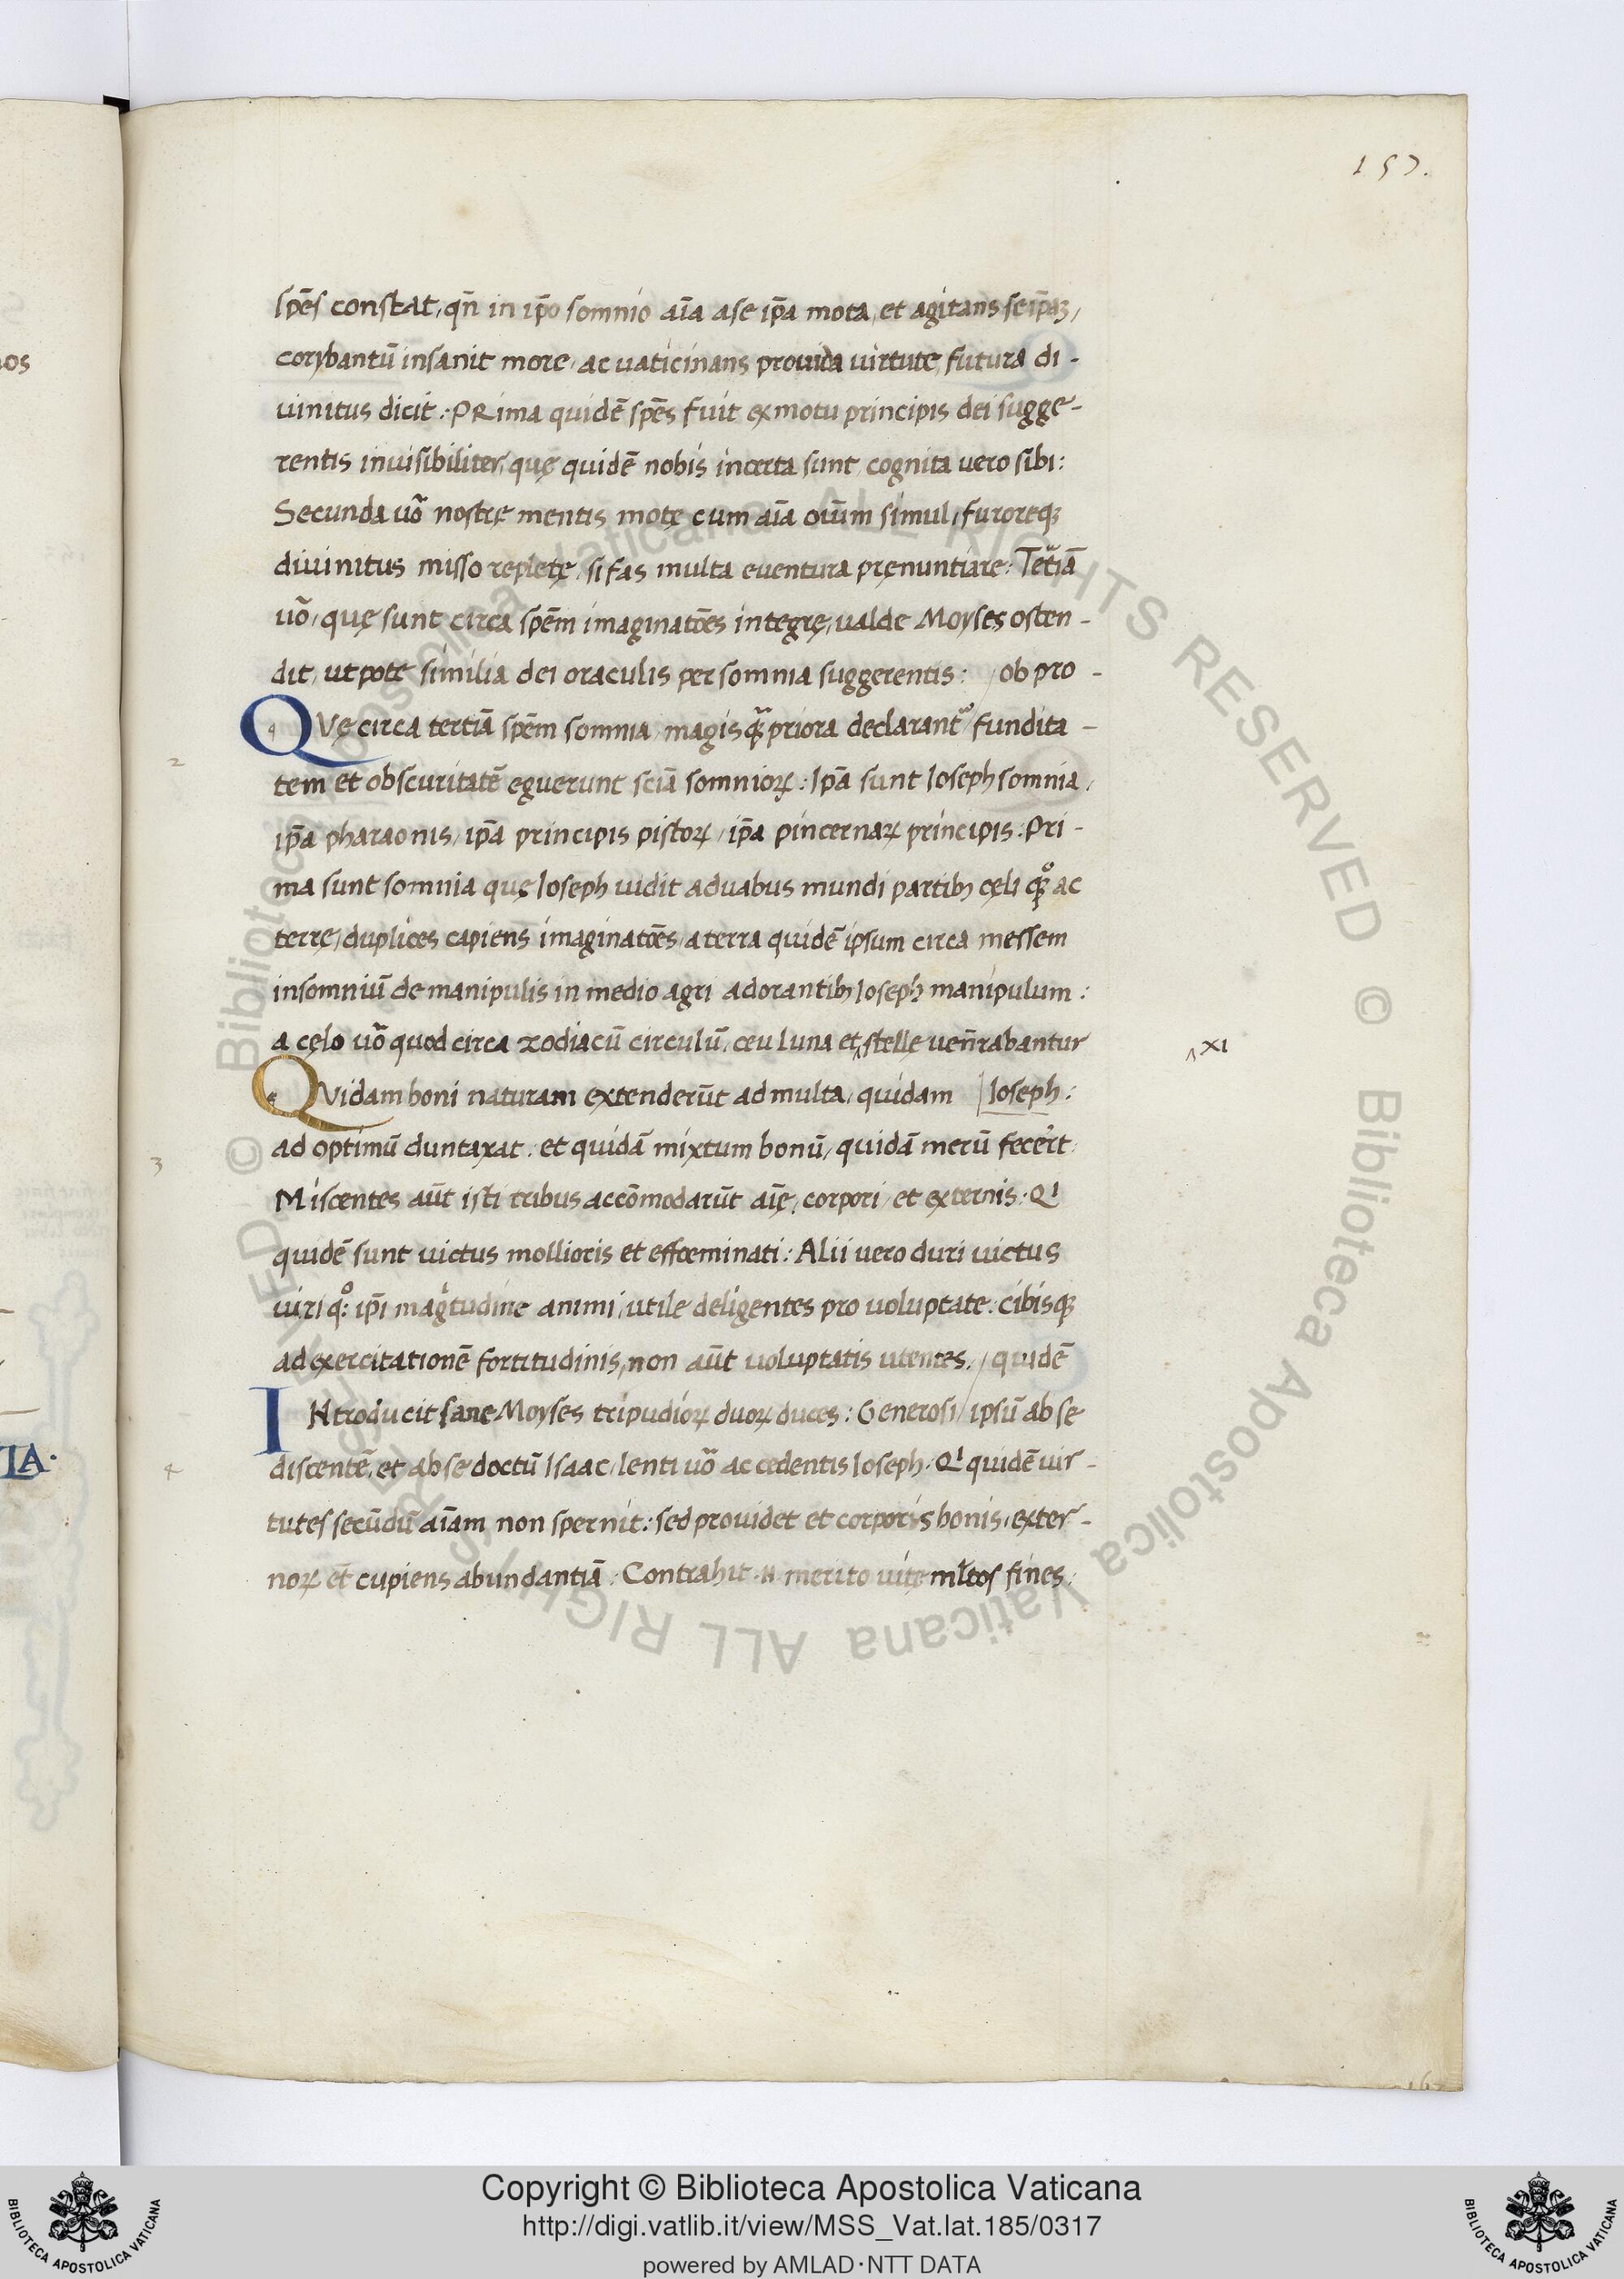 157.
spēs constat, qn̄ in ip̄o somnio aīa a se ip̄a mota, et agitans seip̄aꝫ,
corybantū insanit more, ac vaticinans provida virtute, futura di-
vinitus dicit: PRima quidē spēs fuit ex motu principis dei sugge-
rentis invisibiliter, quę quidē nobis incerta sunt, cognita vero sibi:
Secunda uō nostrę mentis motę cum aīa oīum simul, furoreqꝫ
divinitus misso repletę, si fas multa eventura pręnuntiare: Tertiā
uō, quę sunt circa spēm imaginatōes integrę, valde Moyses osten-
dit, utpote similia dei oraculis per somnia suggerentis: / ob pro-
QVę circa tertiā spēm somnia, magis qꝫ priora declarantᵘ fundita-
tem et obscuritatē eguerunt sciā somnioꝝ: Ipā sunt Ioseph somnia,
ipā pharaonis, ipā principis pistoꝝ, ipā pincernaꝝ principis: Pri-
ma sunt somnia quę Ioseph vidit a duabus mundi partibꝫ cęli qꝫͦ ac
terrę, duplices capiens imaginatōes, a terra quidē ipsum circa messem
insomniū de manipulis in medio agri adorantibꝫ Ioseph manipulum:
a cęlo uō quod circa zodiacū circulū, ceu luna et ‸ stellę veñrabantur
‸ XI
QVidam boni naturam extenderūt ad multa, quidam | Ioseph:
ad optimū duntaxat. et quidā mixtum bonū, quidā merū fecer̄t
Miscentes aūt isti tribus accōmodarūt aīę, corpori, et externis: Qⁱ
quidē sunt victus mollioris et effœminati: Alii vero duri victus
viri qͦ: ip̄i magⁱtudine animi, utile deligentes pro voluptate: cibisqꝫ
ad exercitationē fortitudinis, non aūt voluptatis utentes. / quidē
INtroducit sane Moyses tripudioꝝ duoꝝ duces: Generosi / ipsū ab se
discentē, et ab se doctū Isaac, lenti uō accedentis Ioseph. Qⁱ quidē vir-
tutes secūdū aīam non spernit: sed providet et corporis bonis, exter-
noꝝ et cupiens abundantiā: Contrahit .n. merito vitę ml̄tos fines:
2
3
4
LA.
Biblioteca Apostolica Vaticana ALL RIGHTS RESERVED © Biblioteca Apostolica Vaticana ALL RIGHTS RESERVED ©
BIBLIOTECA APOSTOLICA VATICANA
Copyright © Biblioteca Apostolica Vaticana
http://digi.vatlib.it/view/MSS_Vat.lat.185/0317
powered by AMLAD·NTT DATA
BIBLIOTECA APOSTOLICA VATICANA